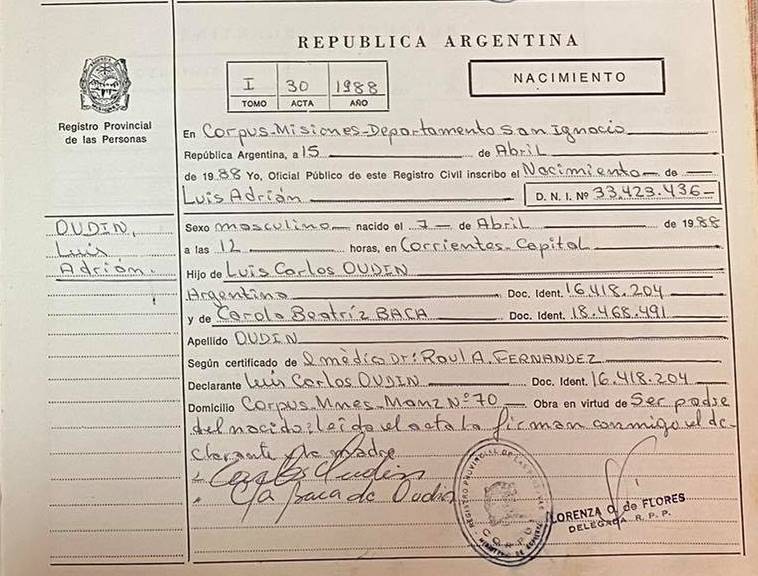 REPUBLICA ARGENTINA
I 30 1988
TOMO ACTA AÑO
NACIMIENTO
Registro Provincial
de las Personas
En Corpus-Misiones-Departamento San Ignacio
República Argentina, a 15 de Abril
de 1988 Yo, Oficial Público de este Registro Civil inscribo el Nacimiento de
Luis Adrián D. N. I. Nº 33.423.436
OUDIN,
Luis
Adrián.
Sexo masculino nacido el 7 de Abril de 1988
a las 12 horas, en Corrientes-Capital
Hijo de Luis Carlos OUDIN
Argentino Doc. Ident. 16.418.204
y de Carola Beatríz BACA Doc. Ident. 18.468.491
Apellido OUDIN
Según certificado de el médico Dr: Raul A. FERNANDEZ
Declarante Luis Carlos OUDIN Doc. Ident. 16.418.204
Domicilio Corpus-Mnes-Manz Nº 70 Obra en virtud de Ser padre
del nacido: leído el acta la firman conmigo el de-
clarante y la madre
Carlos Oudin
Baca de Oudin
REGISTRO PROVINCIAL DE LAS PERSONAS
CORPUS
LORENZA O. de FLORES
DELEGADA R. P. P.